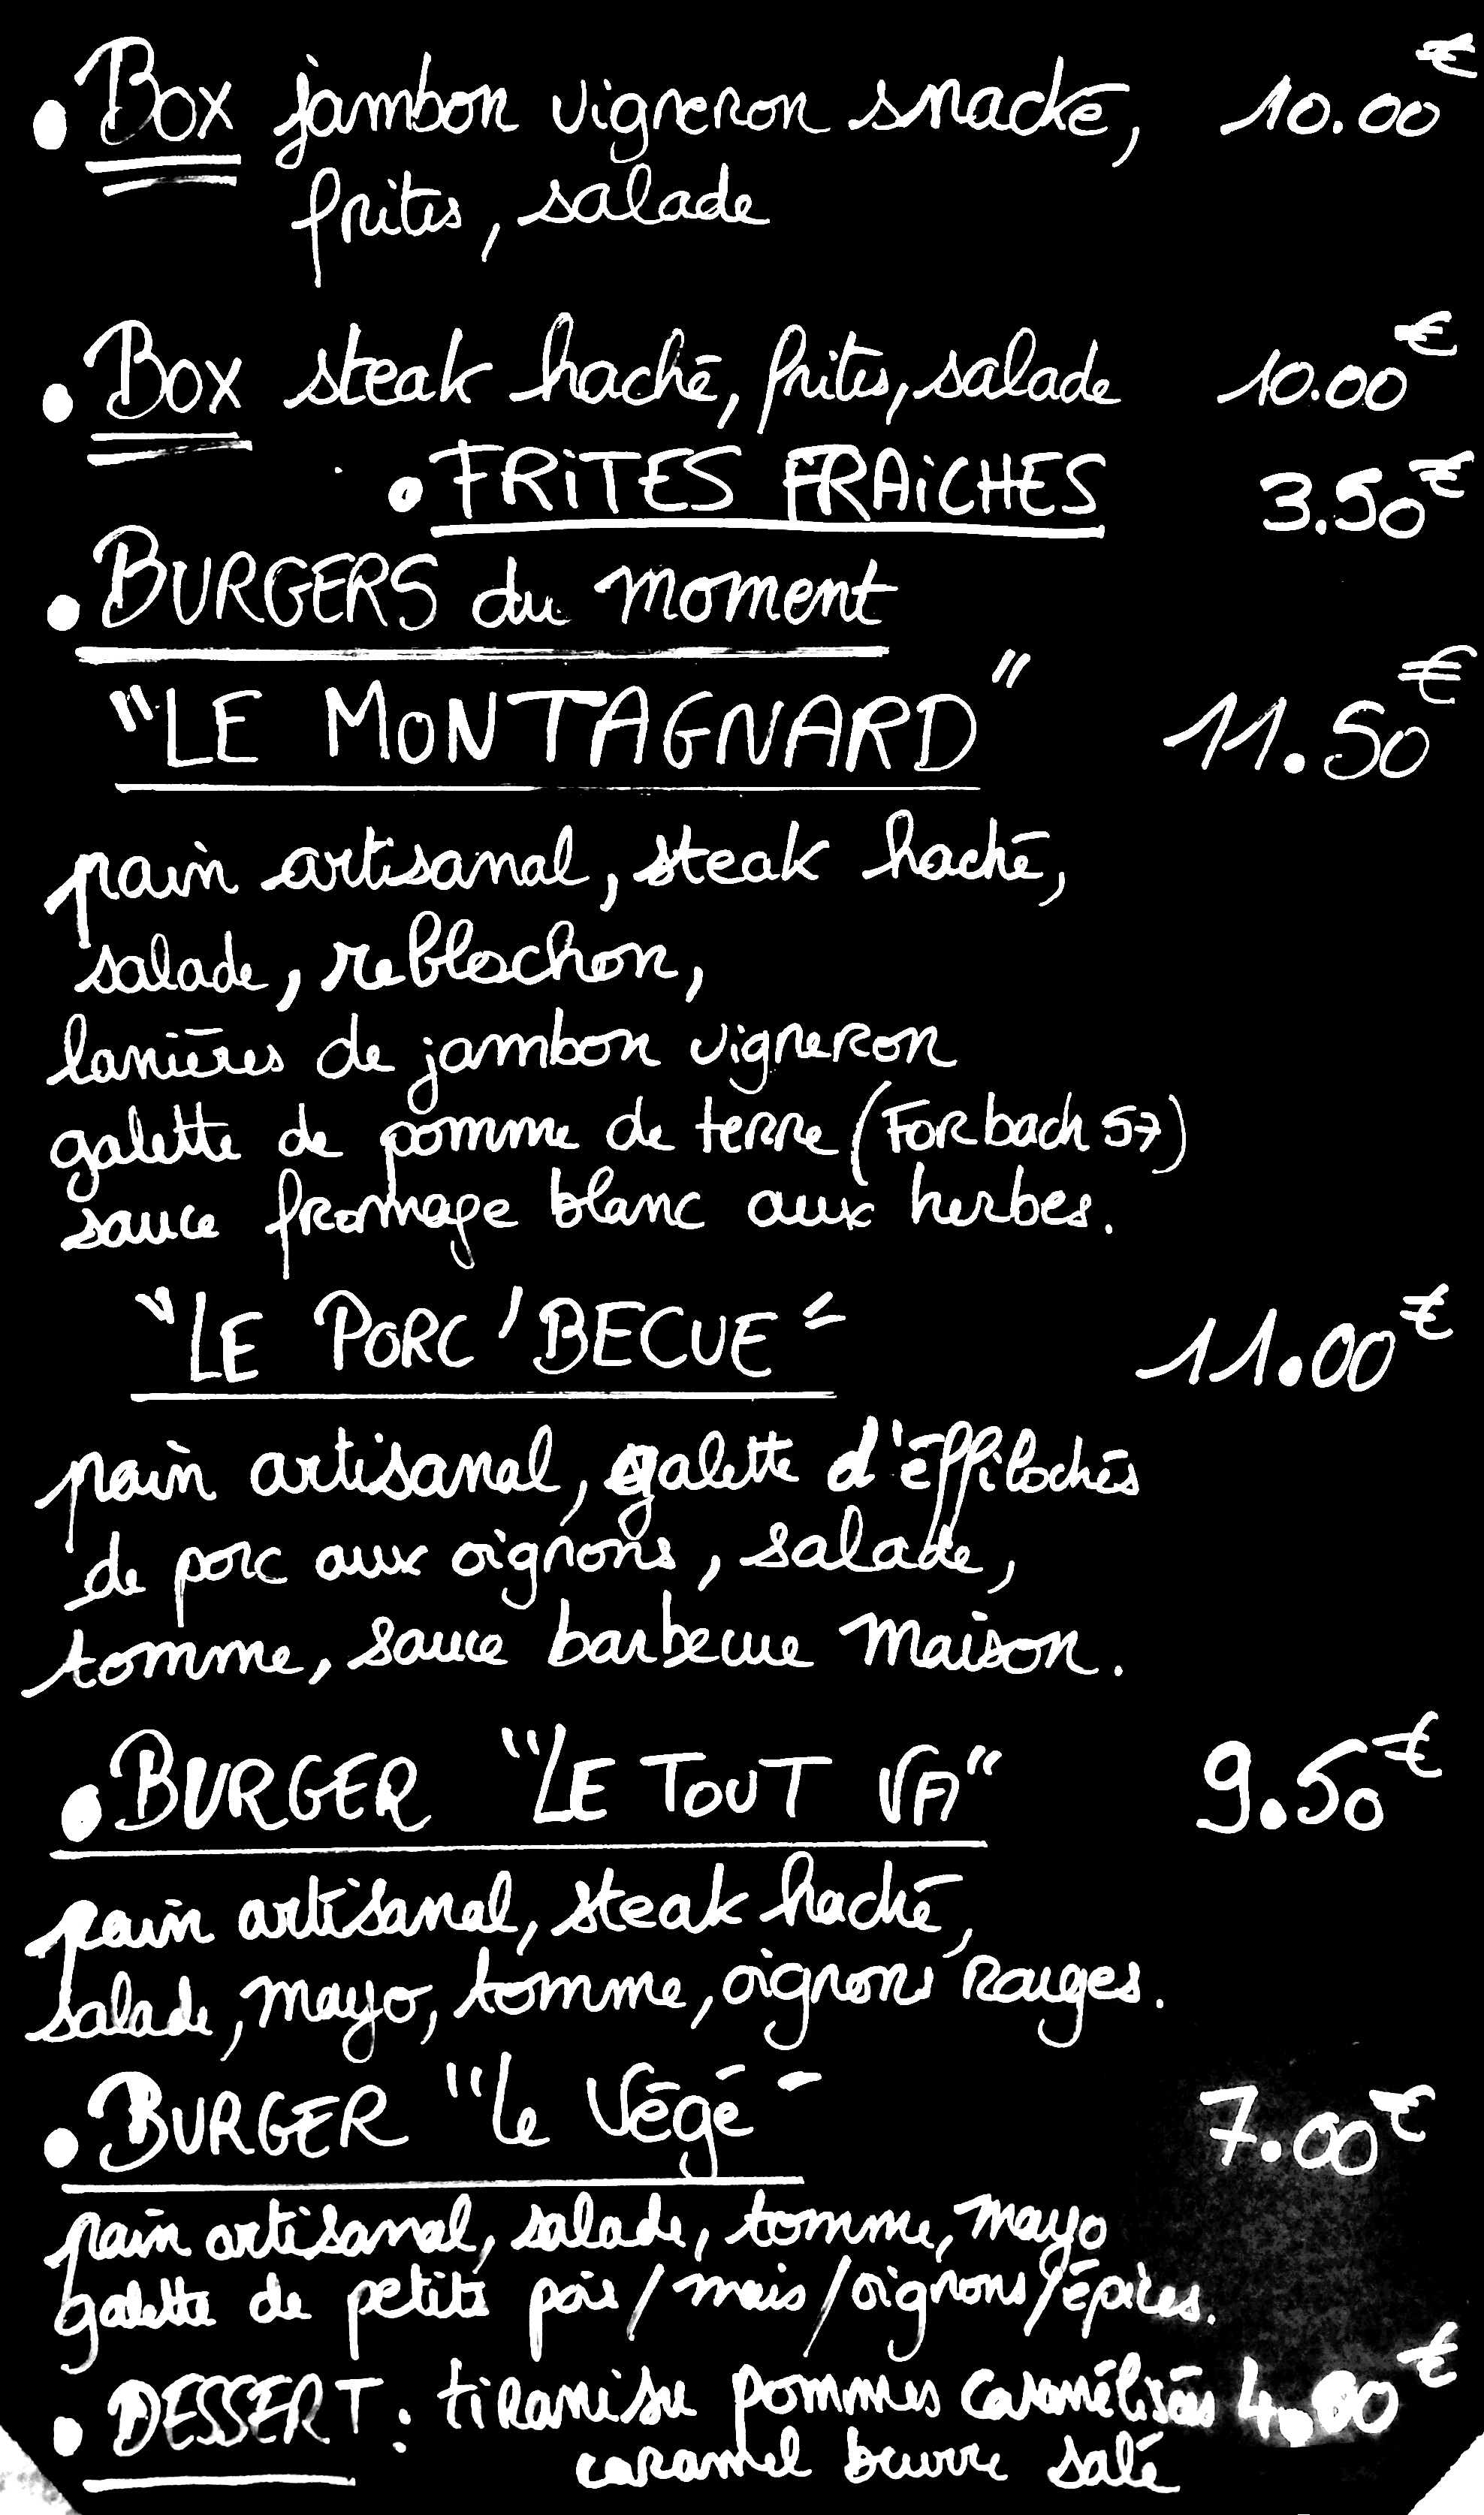 • Box jambon vigneron snacké, 10.00€
frites, salade
• Box steak haché, frites, salade 10.00€
• FRiTES FRAiCHES 3.50€
• BURGERS du moment
"LE MONTAGNARD" 11.50€
pain artisanal, steak haché,
salade, reblochon,
lanières de jambon vigneron
galette de pomme de terre (Forbach 57)
sauce fromage blanc aux herbes.
"LE PORC'BECUE" 11.00€
pain artisanal, galette d'éffilochés
de porc aux oignons, salade,
tomme, sauce barbecue maison.
• BURGER "LE TOUT VA" 9.50€
pain artisanal, steak haché,
salade, mayo, tomme, oignons rouges.
• BURGER "le Végé" 7.00€
pain artisanal, salade, tomme, mayo
galette de petits pois/mais/oignons/épices.
• DESSERT : tiramisu pommes caramélisées €
caramel beurre salé